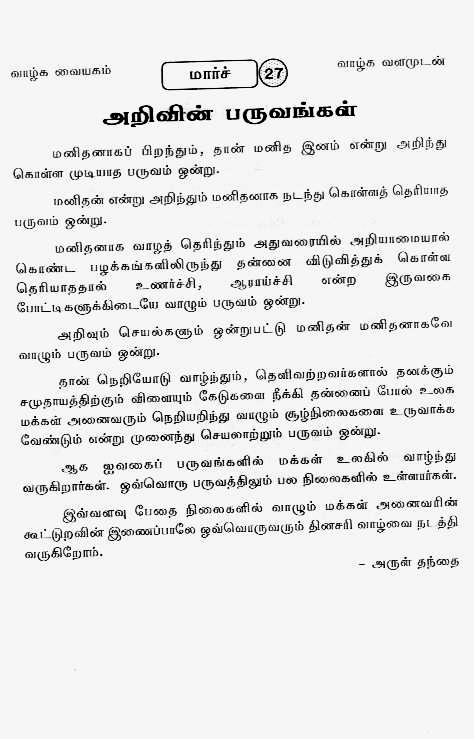 வாழ்க வையகம்
மார்ச் 27
வாழ்க வளமுடன்
அறிவின் பருவங்கள்
மனிதனாகப் பிறந்தும், தான் மனித இனம் என்று அறிந்து
கொள்ள முடியாத பருவம் ஒன்று.
மனிதன் என்று அறிந்தும் மனிதனாக நடந்து கொள்ளத் தெரியாத
பருவம் ஒன்று.
மனிதனாக வாழத் தெரிந்தும் அதுவரையில் அறியாமையால்
கொண்ட பழக்கங்களிலிருந்து தன்னை விடுவித்துக் கொள்ள
தெரியாததால் உணர்ச்சி, ஆராய்ச்சி என்ற இருவகை
போட்டிகளுக்கிடையே வாழும் பருவம் ஒன்று.
அறிவும் செயல்களும் ஒன்றுபட்டு மனிதன் மனிதனாகவே
வாழும் பருவம் ஒன்று.
தான் நெறியோடு வாழ்ந்தும், தெளிவற்றவர்களால் தனக்கும்
சமுதாயத்திற்கும் விளையும் கேடுகளை நீக்கி தன்னைப் போல் உலக
மக்கள் அனைவரும் நெறியறிந்து வாழும் சூழ்நிலைகளை உருவாக்க
வேண்டும் என்று முனைந்து செயலாற்றும் பருவம் ஒன்று.
ஆக ஐவகைப் பருவங்களில் மக்கள் உலகில் வாழ்ந்து
வருகிறார்கள். ஒவ்வொரு பருவத்திலும் பல நிலைகளில் உள்ளார்கள்.
இவ்வளவு பேதை நிலைகளில் வாழும் மக்கள் அனைவரின்
கூட்டுறவின் இணைப்பாலே ஒவ்வொருவரும் தினசரி வாழ்வை நடத்தி
வருகிறோம்.
– அருள் தந்தை